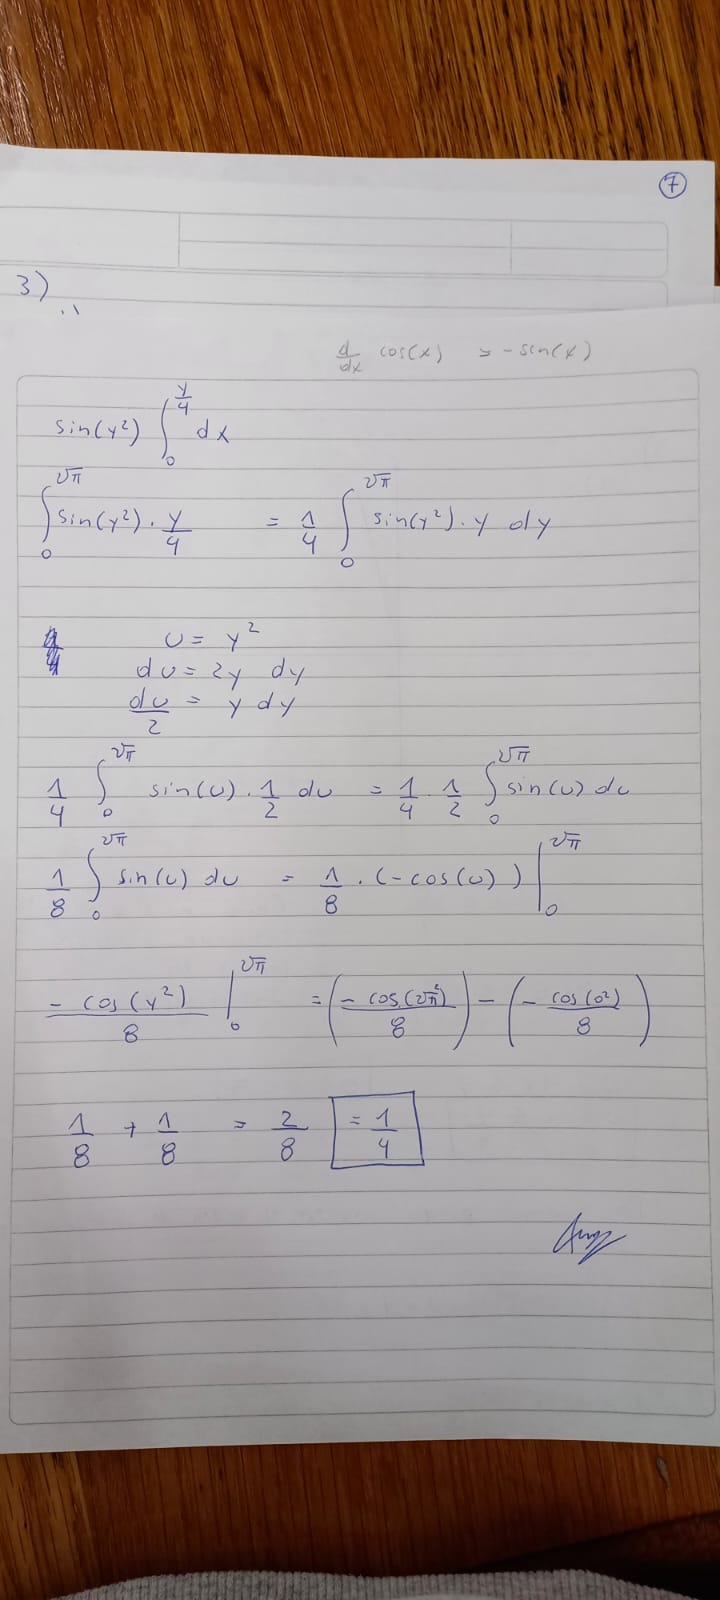 7
3)
d/dx cos(x) = -sin(x)
sin(y²) ∫₀^(y/4) dx
∫₀^(√π) sin(y²) · y/4 = 1/4 ∫₀^(√π) sin(y²) · y dy
u = y²
du = 2y dy
du/2 = y dy
1/4 ∫₀^(√π) sin(u) · 1/2 du = 1/4 · 1/2 ∫₀^(√π) sin(u) du
1/8 ∫₀^(√π) sin(u) du = 1/8 · (-cos(u)) |₀^(√π)
-cos(y²)/8 |₀^(√π) = (-cos(√π²)/8) - (-cos(0²)/8)
1/8 + 1/8 = 2/8 = 1/4